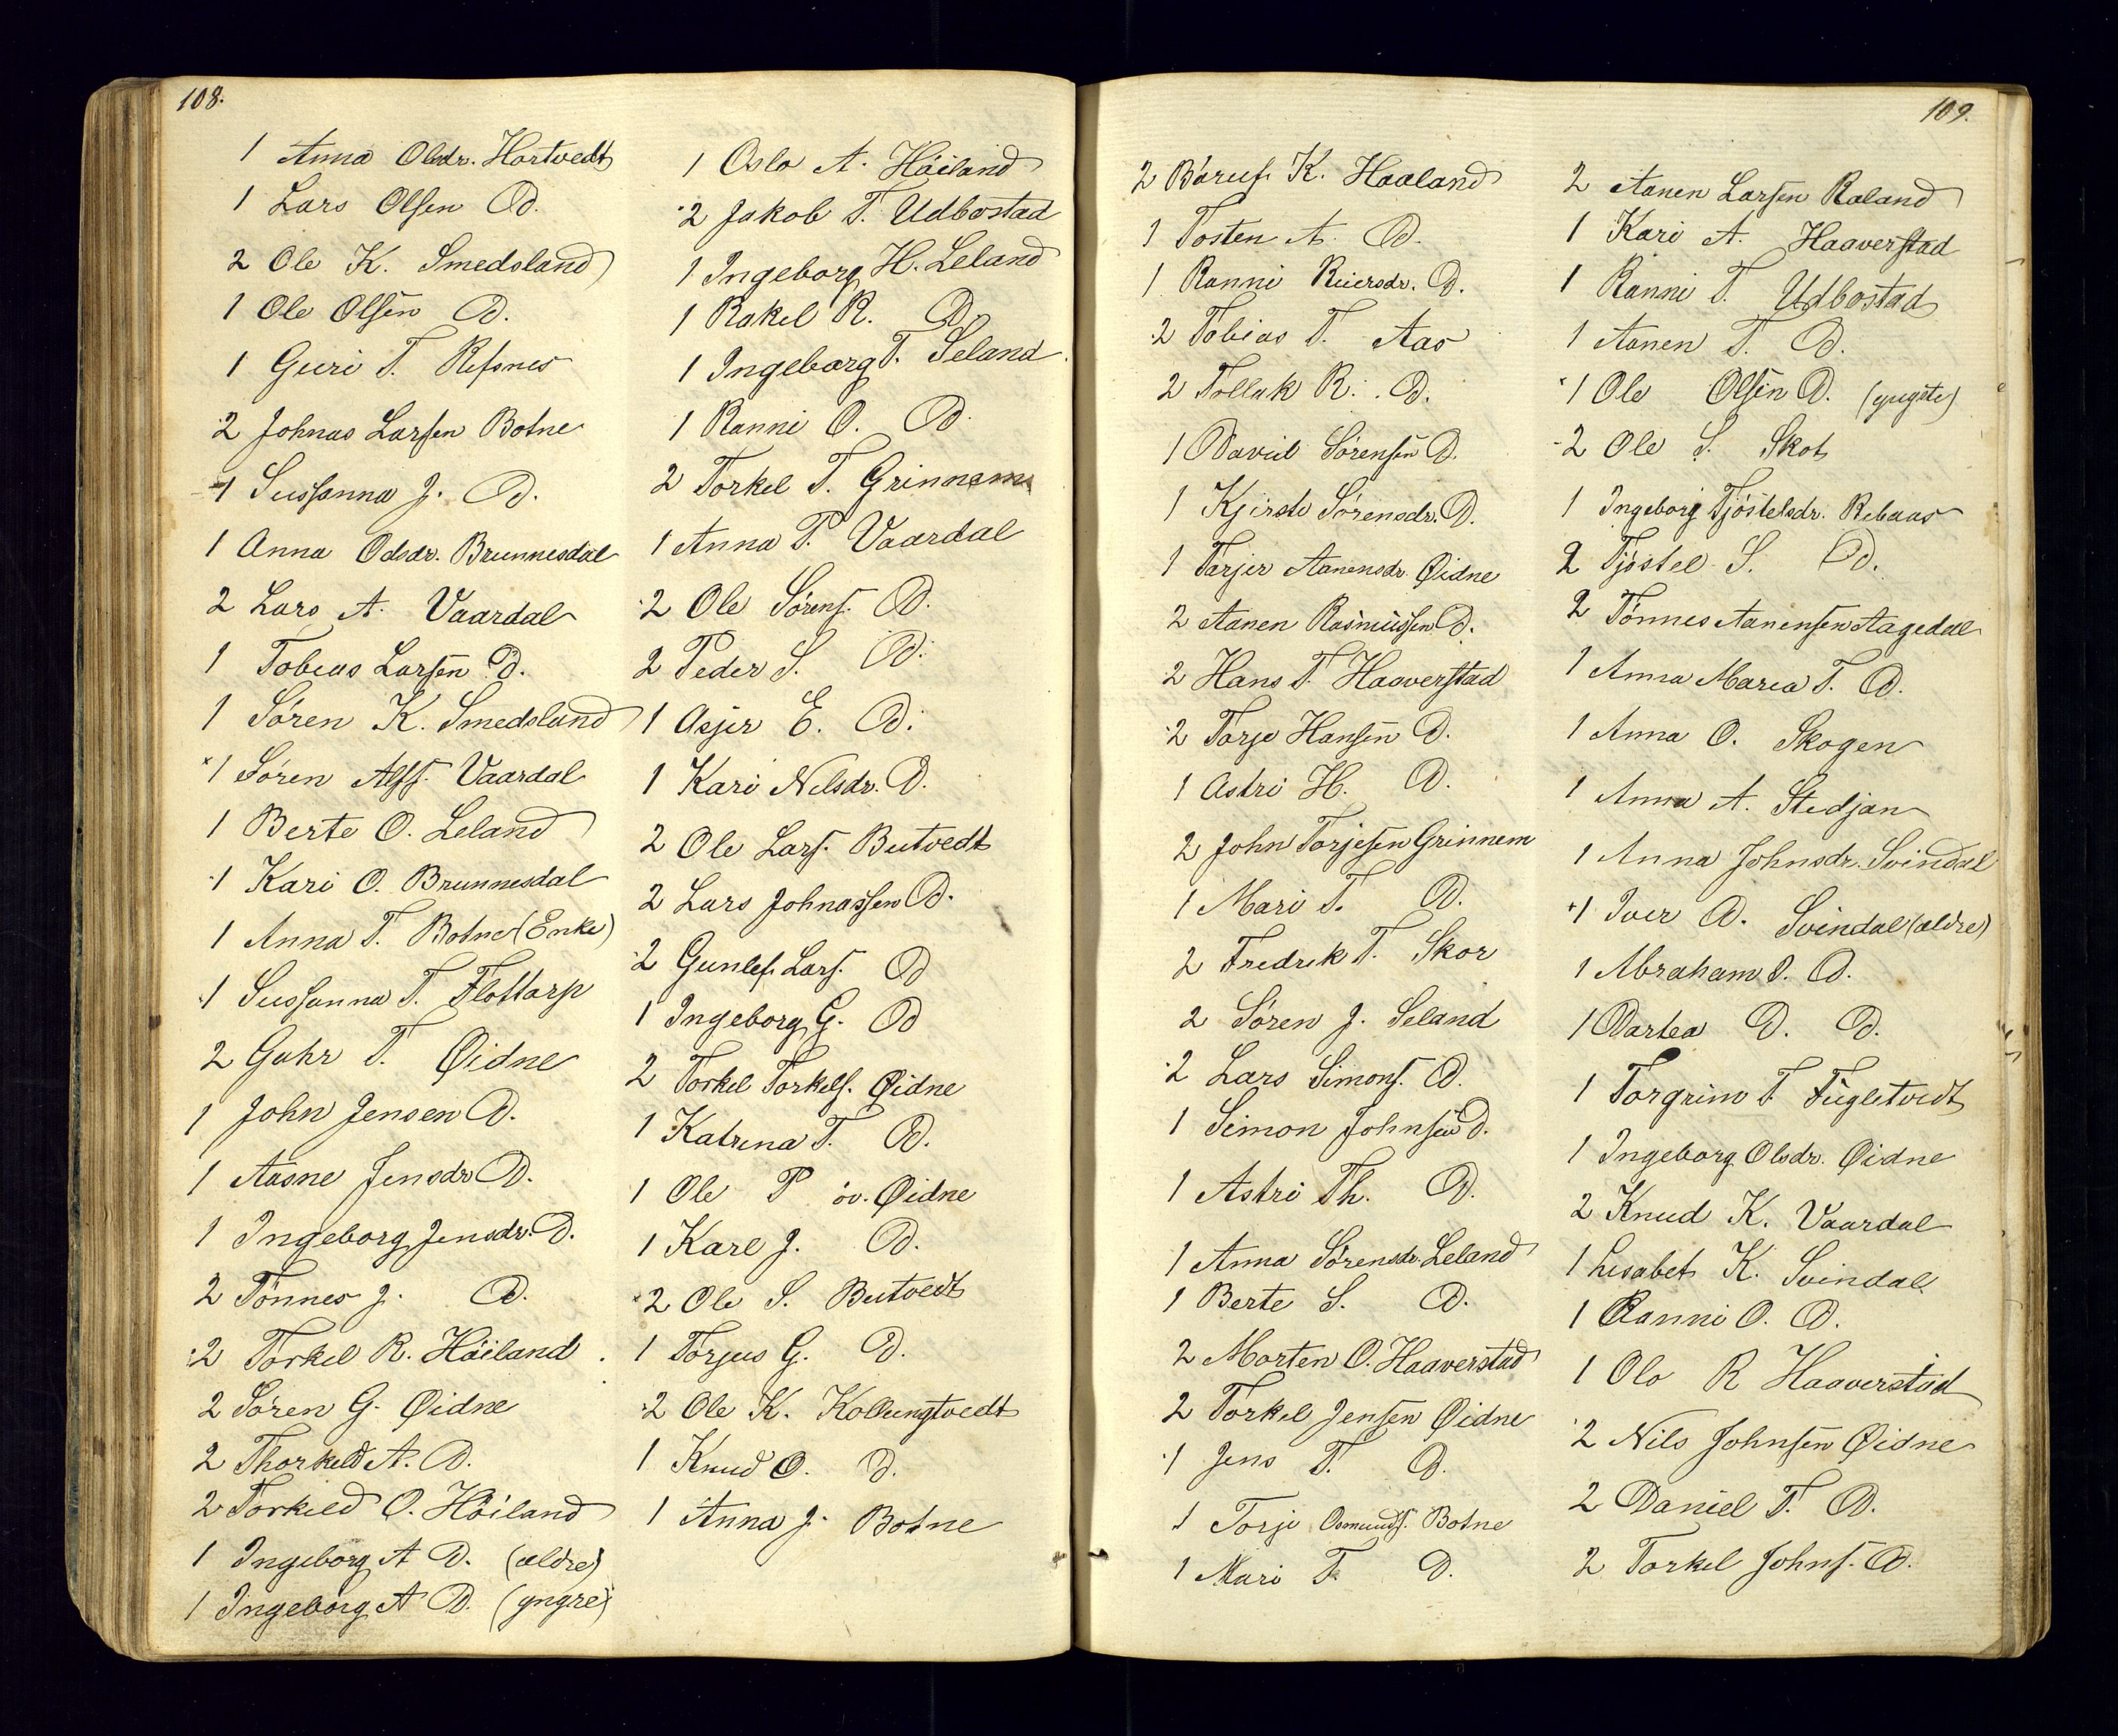 108.
1 Anna Olsdr. Hortvedt
1 Lars Olsen D.
2 Ole K. Smedsland
1 Ole Olsen D.
1 Guri T. Refsnes
2 Johnas Larsen Botne
1 Susanna J. D.
1 Anna Odsdr. Brunnesdal
2 Lars A. Vaardal
1 Tobias Larsen D.
1 Søren K. Smedsland
1 Søren Alfs. Vaardal
1 Berte O. Leland
1 Kari O. Brunnesdal
1 Anna T. Botne (Enke)
1 Susanna T. Flottorp
2 Gahr T. Øidne
1 John Jensen D.
1 Aasne Jensdr D.
1 Ingeborg Jensdr. D.
2 Tønnes J. D.
2 Torkel R. Høiland
2 Søren G. Øidne
2 Thorkild A. D.
2 Torkild O. Høiland
1 Ingeborg A D. (ældre)
1 Ingeborg A D. (yngre)
1 Oslo A. Høiland
2 Jakob T. Udbostad
1 Ingeborg H. Leland
1 Rakel R. D.
1 Ingeborg T. Seland
1 Ranni O. D.
2 Torkel T. Grinnem
1 Anna P. Vaardal
2 Ole Sørens. D.
2 Peder S. D.
1 Asjer E. D.
1 Kari Nilsdr. D.
2 Ole Lars. Butvedt
2 Lars Johnassen D.
2 Gunlef Lars. D
1 Ingeborg G. D
2 Torkel Torkels. Øidne
1 Katrina T. D.
1 Ole P øv. Øidne
1 Karl J. D.
2 Ole S. Butvedt
1 Torjus G. D.
2 Ole K. Kollungtvedt
1 Knud O. D.
1 Anna J. Botne
109.
2 Barus K. Haaland
1 Tosten A. D.
1 Ranni Reiersdr. D.
2 Tobias T. Aas
2 Tollak R. D.
1 David Sørensen D.
1 Kjirsti Sørensdr. D.
1 Tarjer Aanensdr. Øidne
2 Aanen Rasmussen D.
2 Hans T. Haaverstad
2 Torje Hansen D.
1 Astri H. D.
2 John Torjesen Grinnem
1 Mari T. D.
2 Fredrik T. Skor
2 Søren J. Seland
2 Lars Simons. D.
1 Simon Johnsen D.
1 Astri Th. D.
1 Anna Sørensdr. Leland
1 Berte S. D.
2 Morten O. Haaverstad
2 Torkel Jensen Øidne
1 Jens T. D.
1 Torje Osmunds. Botne
1 Mari T. D.
2 Aanen Larsen Røland
1 Kari A. Haaverstad
1 Ranni T. Udbostad
1 Aanen T. D.
1 Ole Olsen D. (yngste)
2 Ole S. Skot
1 Ingeborg Tjøstelsdr. Rebaas
2 Tjøstel S. D.
2 Tønnes Aanensen Aagedal
1 Anna Maria T. D.
1 Anna O. Skogen
1 Anna A. Stedjan
1 Anna Johnsdr. Svindal
1 Iver D. Svindal (ældre)
1 Abraham I. D.
1 Dartea D. D.
1 Torgrim T Fugletvedt
1 Ingeborg Olsdr. Øidne
2 Knud K. Vaardal
1 Lisabet K. Svindal
1 Ranni O. D.
1 Olo R Haaverstad
2 Nils Johnsen Øidne
2 Daniel T. D.
2 Torkel Johns. D.